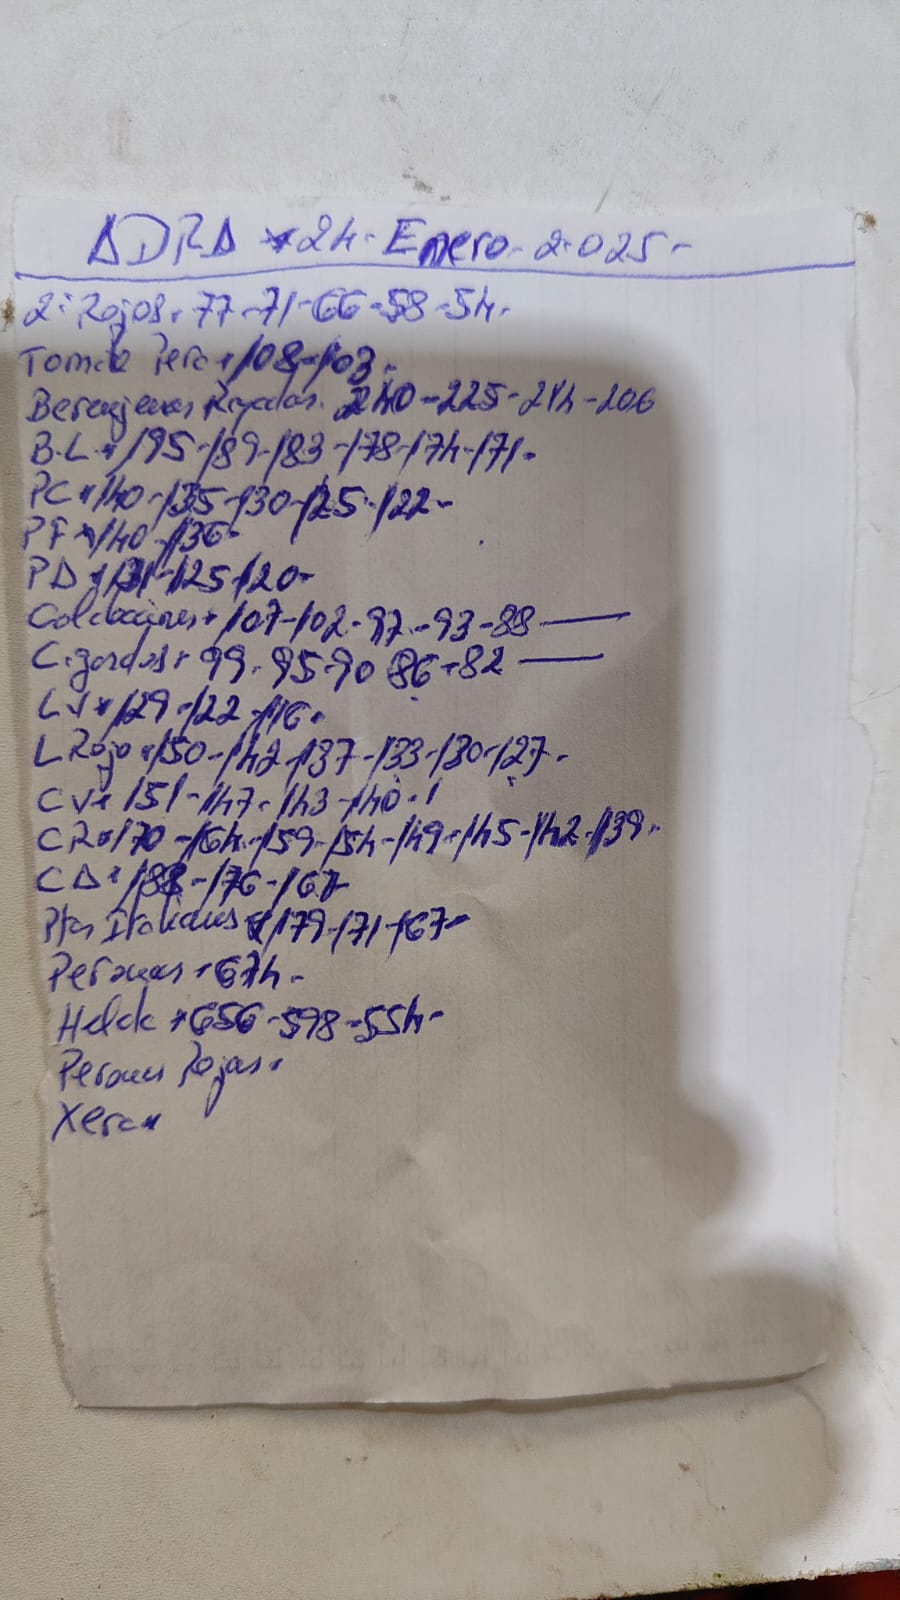 ADRA * 24 - Enero - 2.025 -
2ª Rojos * 77-71-66-58-54.
Tomate Pera * 108-103.
Berenjenas Rayadas. 240-225-214-206
B.L. * 195-189-183-178-174-171.
PC * 140-135-130-125-122-
PF * 140-136-
PA * 131-125-120-
Calabacines * 107-102-97-93-88 ——
C. gordos * 99-95-90 86-82 ——
LV * 129-122-116.
L Rojo * 150-142-137-133-130-127.
CV * 151-147-143-140.
CR * 170-164-159-154-149-145-142-139.
CA * 188-176-167
Ptos Italianos * 179-171-167-
Peronas * 674.
Helck * 656-598-554-
Peronas Rojas.